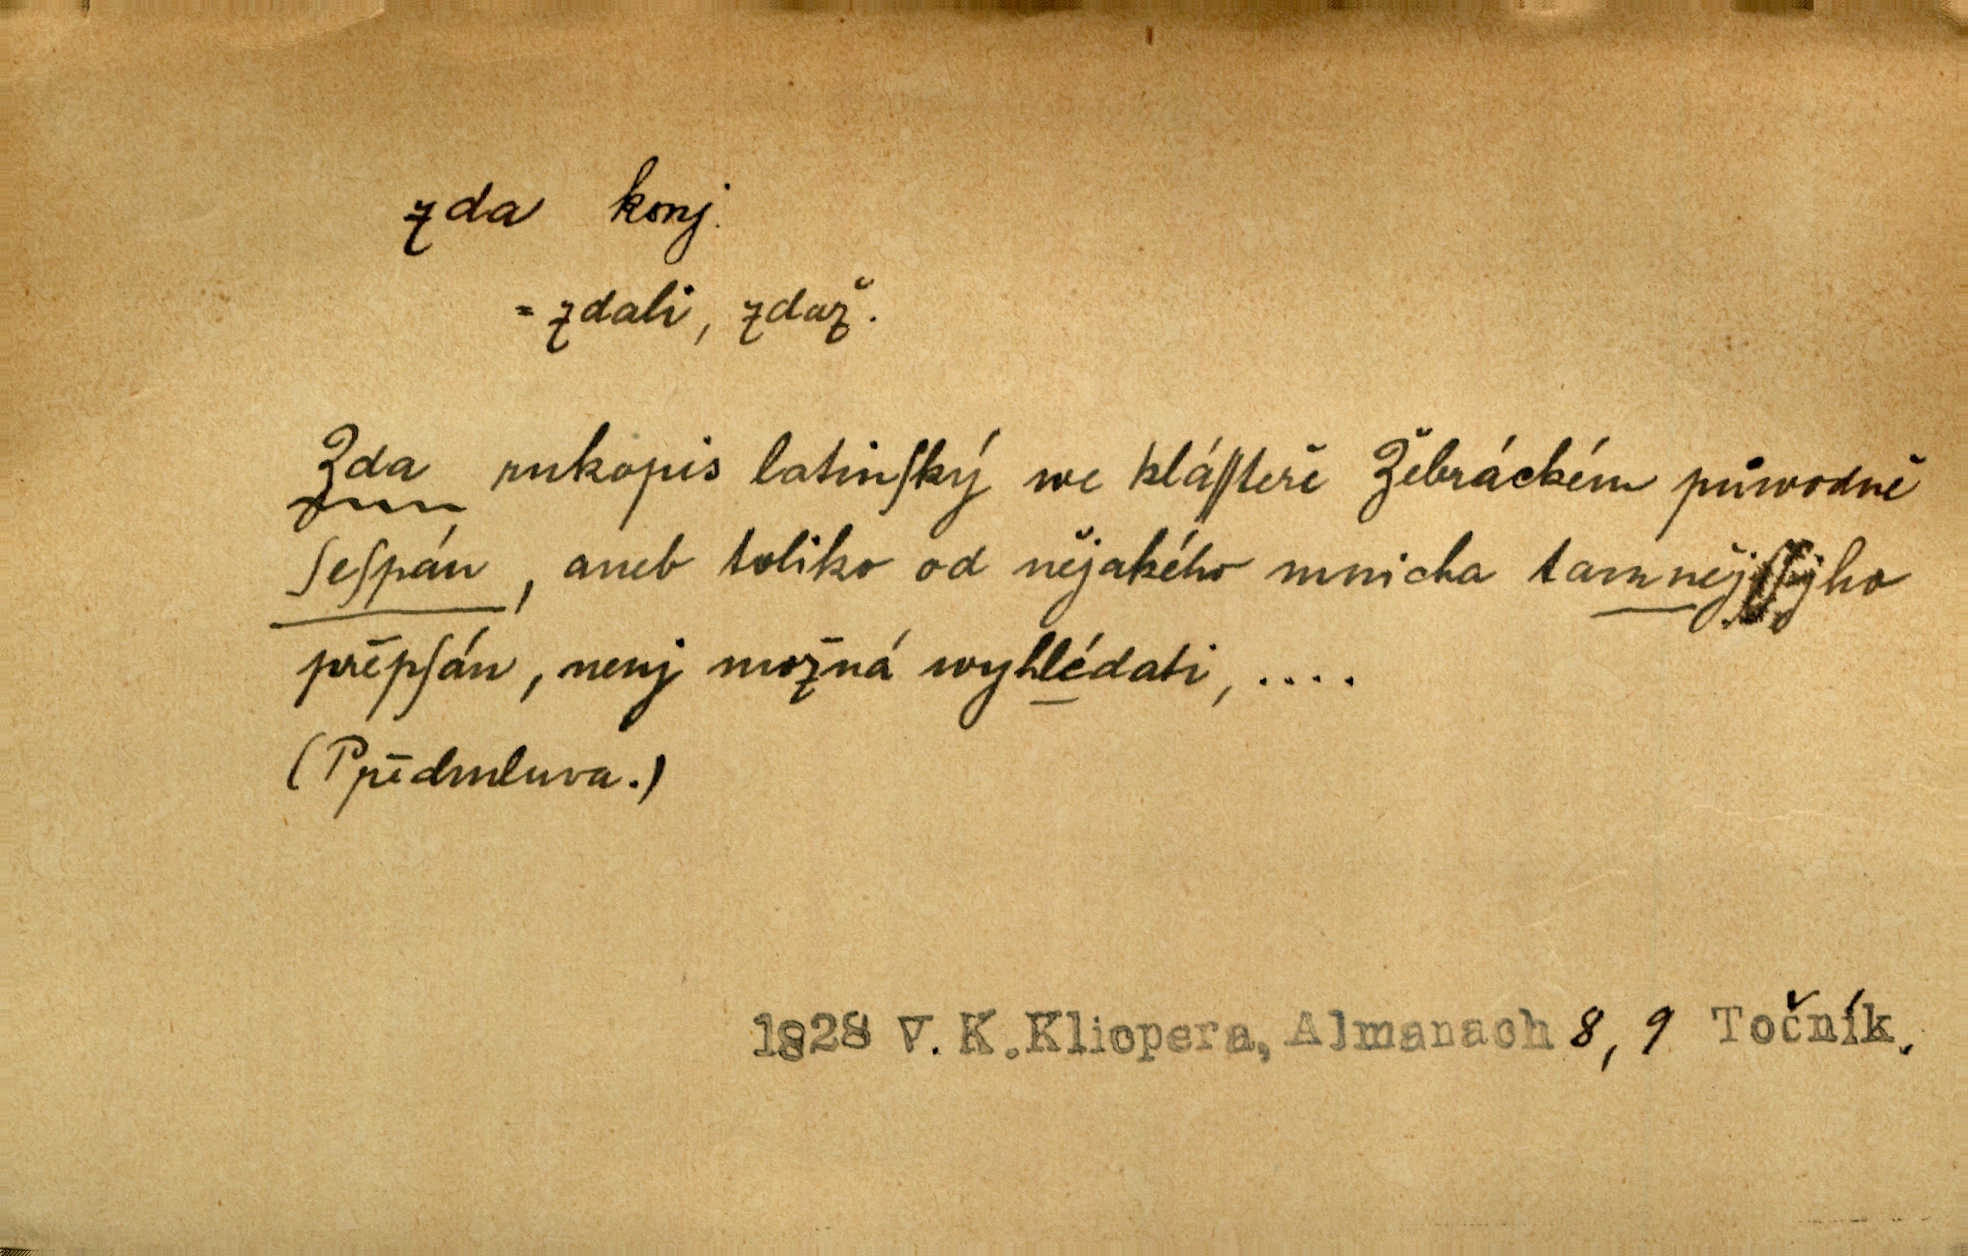 zda konj.
= zdali, zdaž.
Zda rukopis latinſký we kláſſteře Žebráckém půwodně
ſeſpán, aneb toliko od nějakého mnicha tamnějſſjho
přepſán, nenj možná wyhlédati, ....
(Předmluva.)
1828 V. K. Klicpera, Almanach 8, 9 Točník.